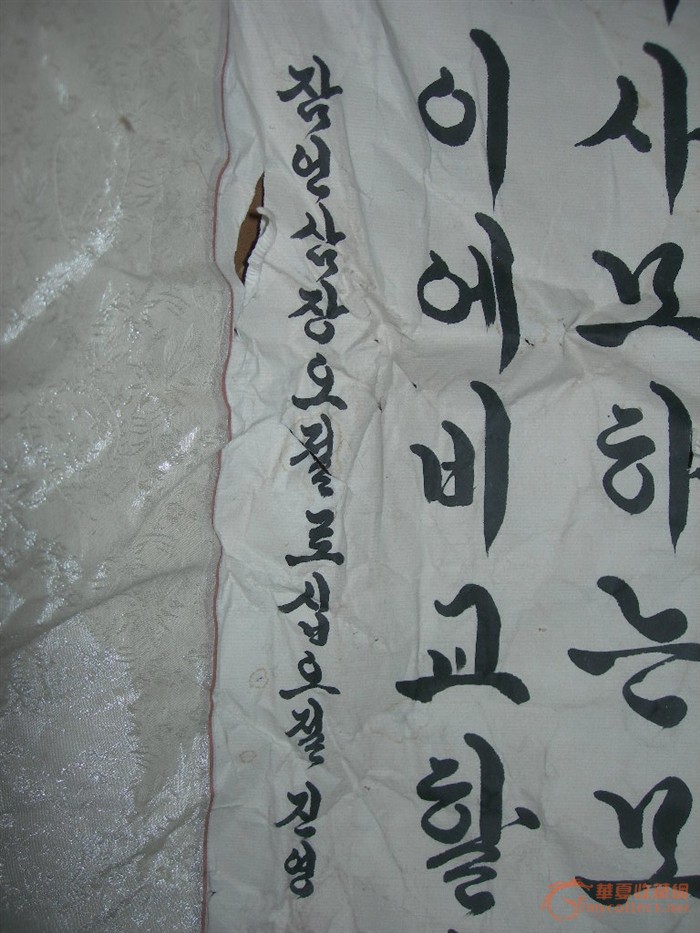 사모하는모
이에비교할
잠언삼장오절로십오절 진영
華夏收藏網